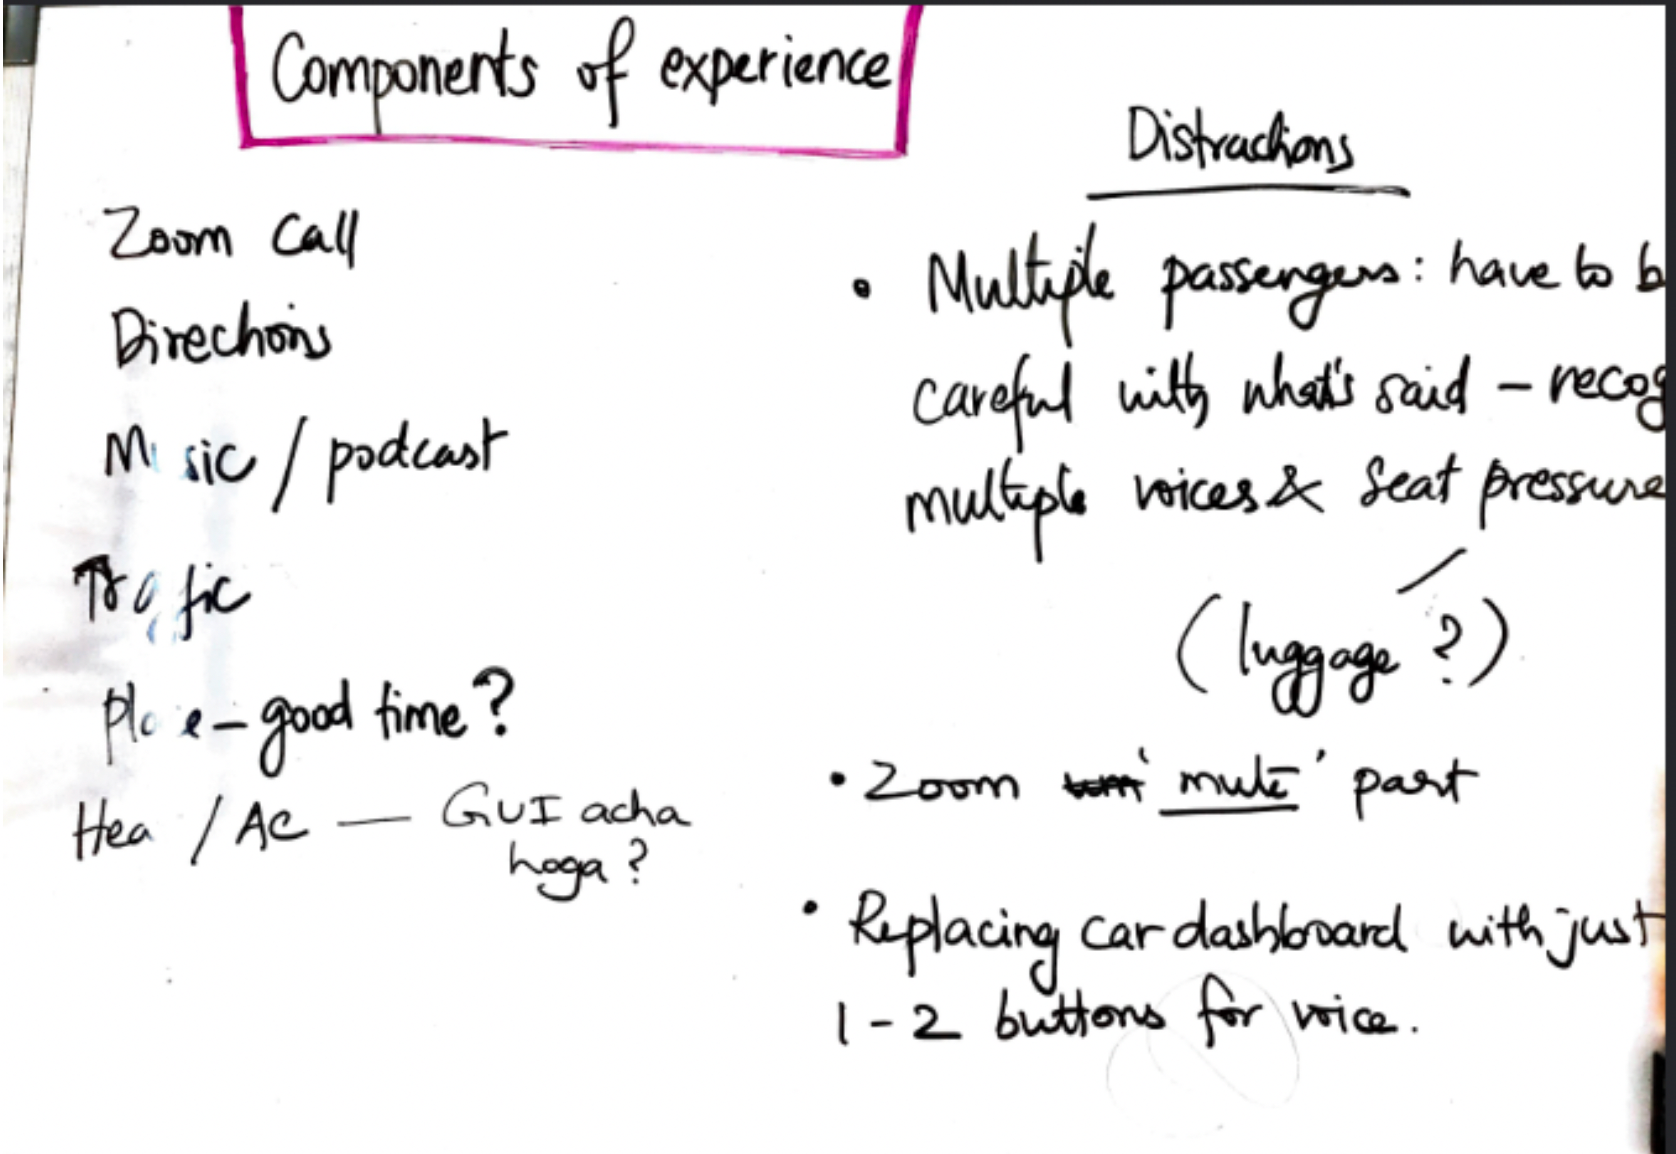 Components of experience
Zoom Call
Directions
Music / podcast
Traffic
good time?
/ AC — GUI acha
hoga?
Distractions
• Multiple passengers: have to b
careful with what's said – recog
multiple voices & seat pressure
(luggage ?)
• Zoom 'mute' part
• Replacing car dashboard with just
1-2 buttons for voice.